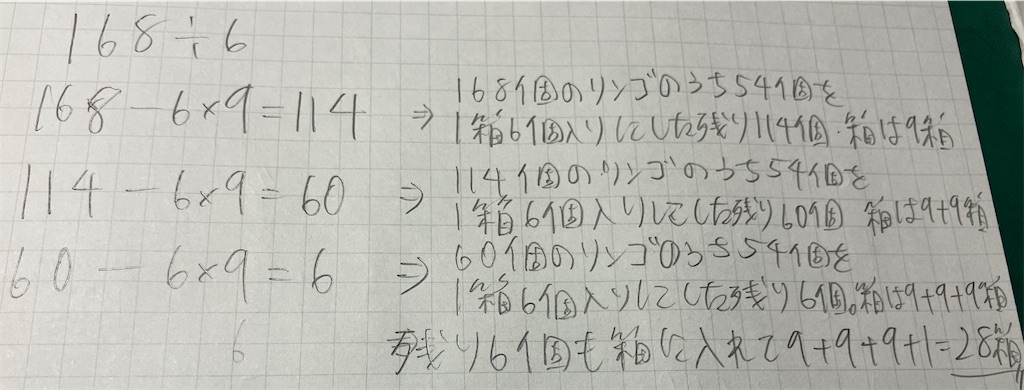 168÷6
168-6×9=114 ⇒ 168個のリンゴのうち54個を
1箱6個入りにした残り114個.箱は9箱
114-6×9=60 ⇒ 114個のリンゴのうち54個を
1箱6個入りにした残り60個 箱は9+9箱
60-6×9=6 ⇒ 60個のリンゴのうち54個を
1箱6個入りにした残り6個。箱は9+9+9箱
残り6個も箱に入れて9+9+9+1=28箱
6